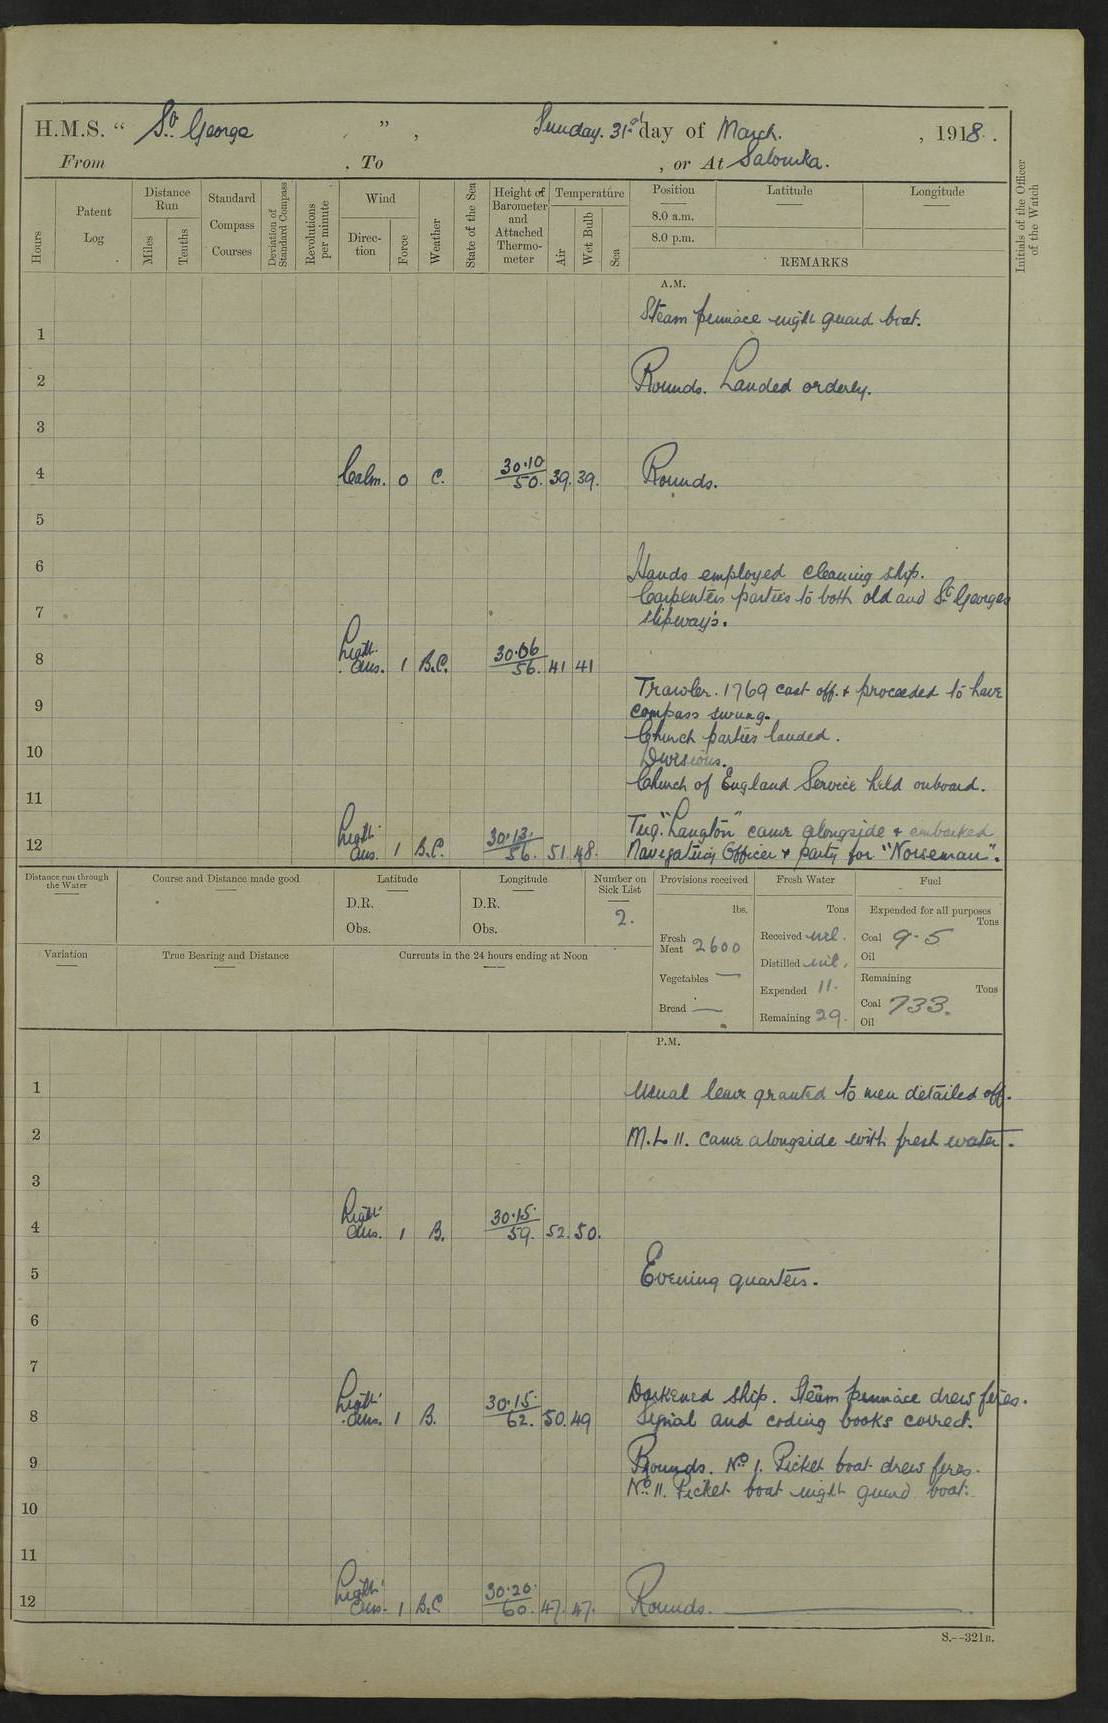 H.M.S. “ St. George ” , Sunday. 31st day of March. , 1918.
From , To , or At Salonika.
Hours
Patent Log
Distance Run
Miles
Tenths
Standard Compass Courses
Deviation of Standard Compass
Revolutions per minute
Wind
Direction
Force
Weather
State of the Sea
Height of Barometer and Attached Thermometer
Temperature
Air
Wet Bulb
Sea
Position
8.0 a.m.
8.0 p.m.
Latitude
Longitude
REMARKS
Initials of the Officer of the Watch
A.M.
Steam pinnace night guard boat.
1
2 Rounds. Landed orderly.
3
4 Calm. 0 C. 30·10/50. 39. 39. Rounds.
5
6 Hands employed cleaning ship.
Carpenters parties to both old and St. Georges
7 slipway's.
8 Light airs. 1 B.C. 30·06/56. 41 41
Trawler. 1769 cast off. & proceeded to have
9 compass swung.
Church parties landed.
10 Divisions.
Church of England Service held onboard.
11
Tug. "Langton" came alongside & embarked
12 Light airs. 1 B.C. 30·13·/56. 51. 48. Navigating Officer & party for "Norseman".
Distance run through the Water
Course and Distance made good
Latitude
D.R.
Obs.
Longitude
D.R.
Obs.
Number on Sick List
2.
Provisions received
lbs.
Fresh Meat 2600
Vegetables —
Bread —
Fresh Water
Tons
Received nil.
Distilled nil.
Expended 11.
Remaining 29.
Fuel
Expended for all purposes
Tons
Coal 9·5
Oil
Remaining
Tons
Coal 733.
Oil
Variation
True Bearing and Distance
Currents in the 24 hours ending at Noon
P.M.
1 Usual leave granted to men detailed off.
2 M.L 11. came alongside with fresh water.
3
4 Light airs. 1 B. 30·15·/59. 52. 50.
5 Evening quarters.
6
7
Darkened ship. Steam pinnace drew fires.
8 Light airs. 1 B. 30·15·/62. 50. 49 Signal and coding books correct.
9 Rounds. No. 1. Picket boat drew fires.
No. 11. Picket boat night guard boat.
10
11
12 Light airs. 1 B.C. 30·20·/60. 47. 47. Rounds.
S.--321B.